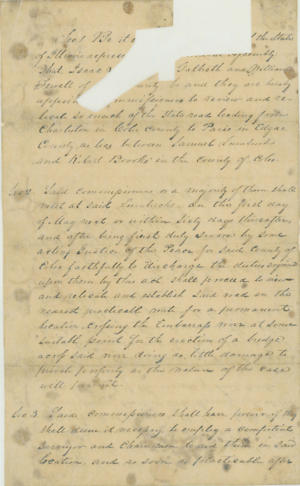 Sec 1 Be it
of the State
of Illinois represented
That Isaac
Galbreth and William
Jewell of
County be and they are hereby
appointed Commissioners to review and re-
locate so much of the State road leading from
Charleston in Coles County to Paris in Edgar
County, as lies between Samuel
and Robert Brooks in the county of Coles
Sec 2 Said commissioners or a majority of them shall
meet at said on the first day
of May next or within Sixty days thereafter
and after being first duly sworn by some
acting Justice of the Peace for said County of
Coles faithfully to discharge the duties required
upon them by this act shall proceed to view
and relocate and establish said road on the
nearest practicable route for a permanent
location crossing the Embarrass river at some
suitable point for the erection of a bridge
across said river doing as little damage to
private property as the nature of the case
will permit
Sec 3 Said commissioners shall have power if they
shall deem it necessary to employ a competent
Surveyor and Chainmen to aid them in said
location, and as soon as practicable after